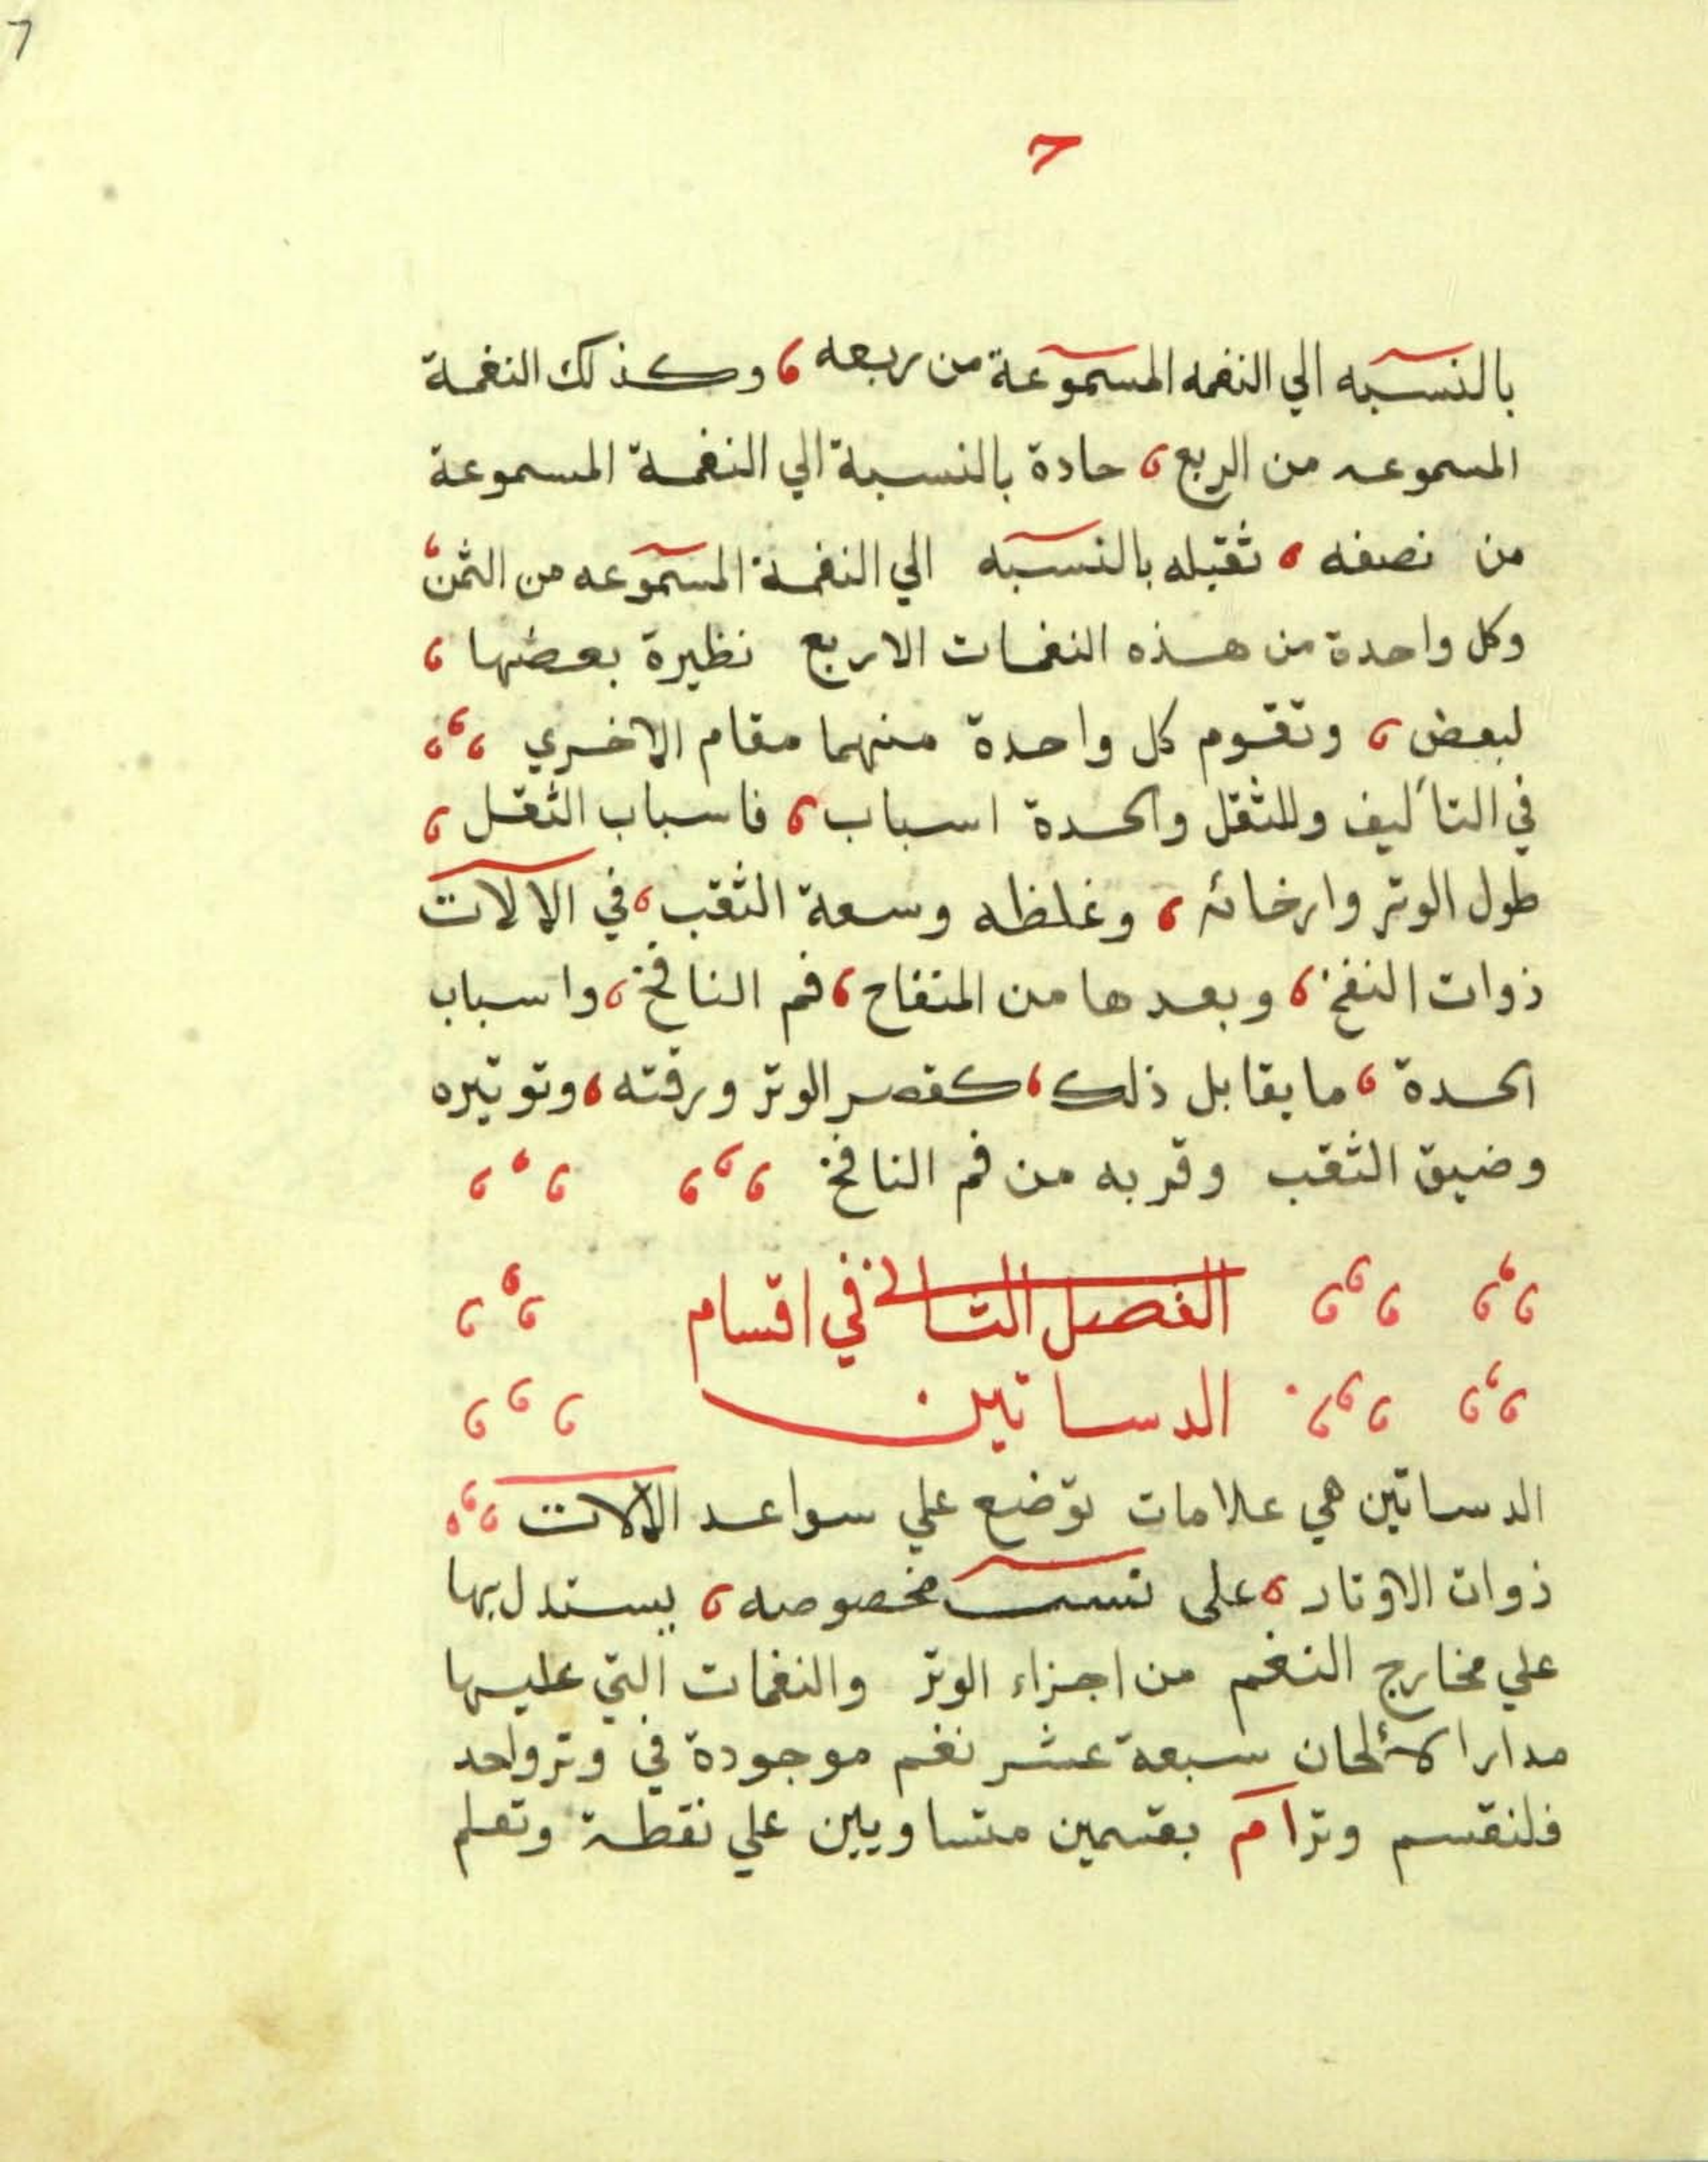 7
7
بالنسبه الي النغمه المسموعة من ربعه ، وكذلك النغمة
المسموعه من الربع ، حادة بالنسبة الي النغمة المسموعة
من نصفه ، ثقيله بالنسبه الي النغمة المسموعه من الثمن ،
وكل واحدة من هذه النغمات الاربع نظيرة بعضها ،
لبعض ، وتقوم كل واحدة منهما مقام الاخري ،،،
في التأليف وللثقل والحدة اسباب ، فاسباب الثقل ،
طول الوتر وارخائه ، وغلظه وسعة الثقب ، في الالات
ذوات النفخ ، وبعدها من المنفاح ، فم النافخ ، واسباب
الحدة ، ما يقابل ذلك ، كقصر الوتر ورقته ، وتوتيره
وضيق الثقب وقربه من فم النافخ ،،، ،،،
،،، ،،، الفصل الثاني في اقسام ،،،
،،، ،،، الدساتين ،،،
الدساتين هي علامات توضع علي سواعد الالات ،،،
ذوات الاوتار ، على نسب مخصوصه ، يستدل بها
علي مخارج النغم من اجزاء الوتر والنغمات التي عليها
مدار الألحان سبعة عشر نغم موجودة في وتر واحد
فلنقسم وتر ا م بقسمين متساويين علي نقطة وتعلم